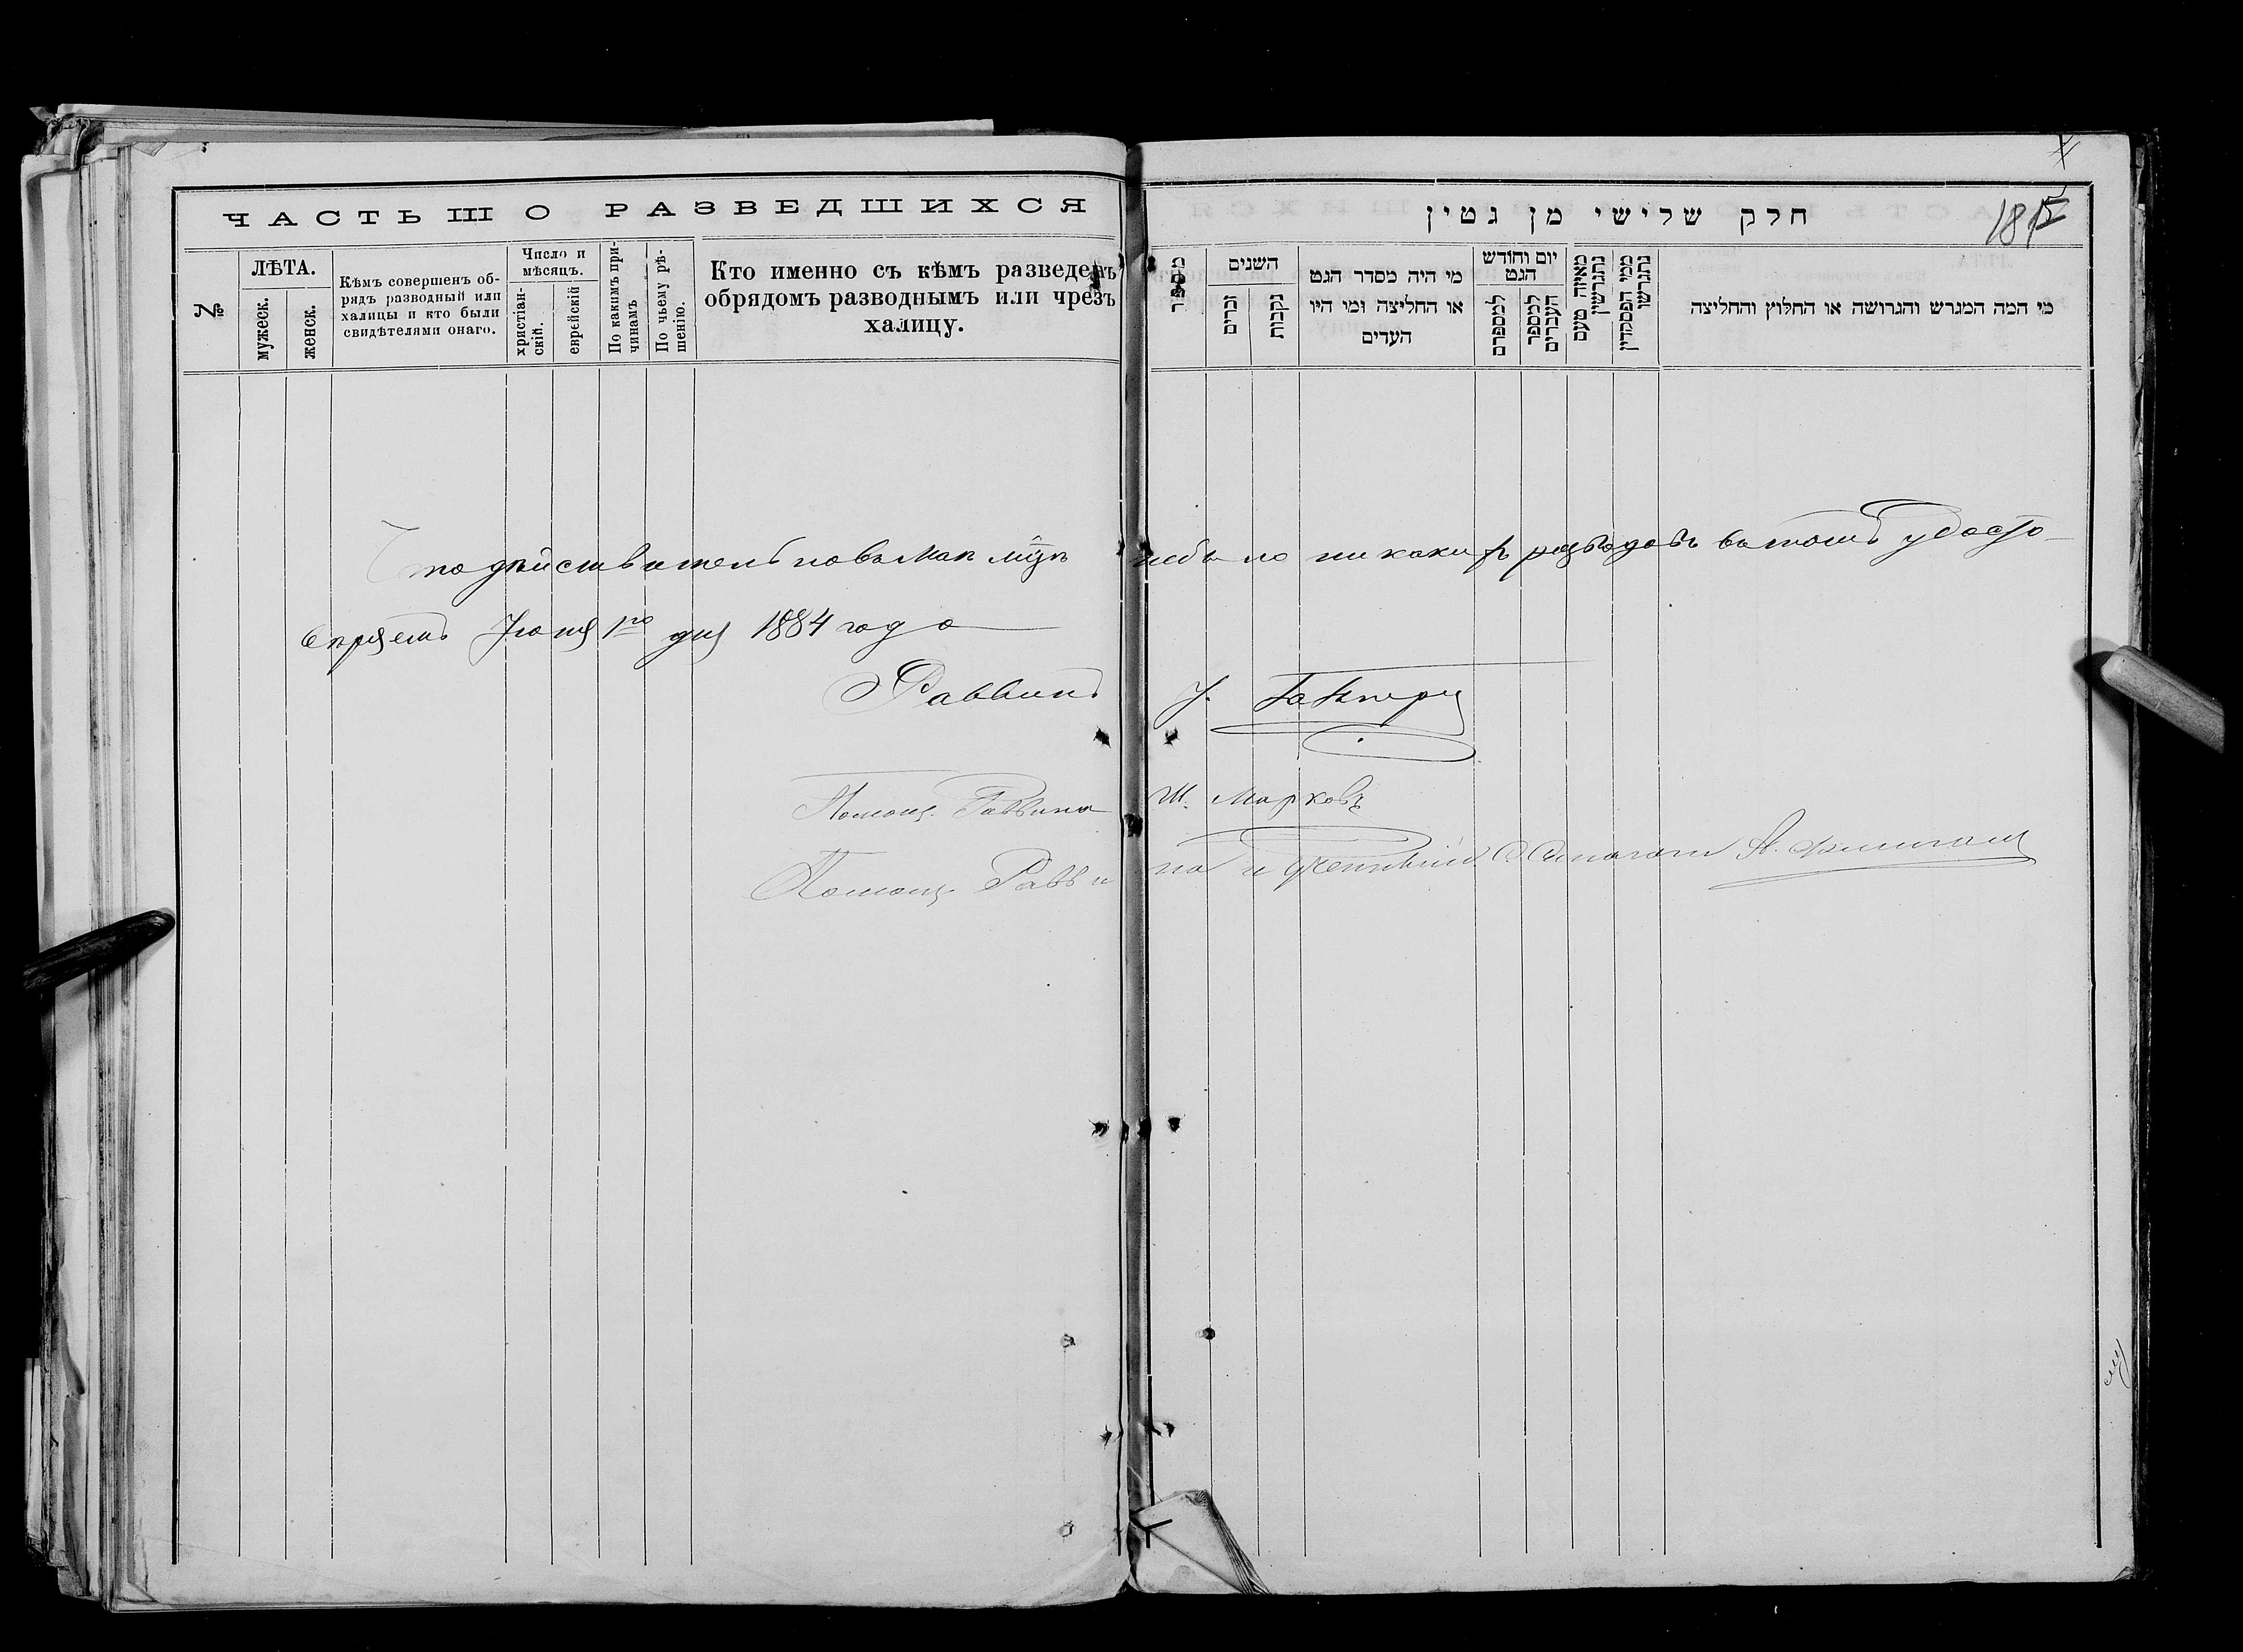 ЧАСТЬ III О РАЗВЕДШИХСЯ
№
ЛѢТА.
мужеск.
женск.
Кѣмъ совершенъ об-
рядъ разводный или
халицы и кто были
свидѣтелями онаго.
Число и
мѣсяцъ.
христіан-
скій.
еврейскій
По какимъ при-
чинамъ
По чьему рѣ-
шенію.
Кто именно съ кѣмъ разведенъ
обрядомъ разводнымъ или чрезъ
халицу.
Что дѣйствительно въ Маѣ м͠цѣ небыло никакихъ разводовъ въ томъ удосто-
вѣряемъ Іюня 1го дня 1884 года
Раввинъ
Помощ. Раввина Ш. Марковъ
Помощ. Раввина и
חלק שלישי מן גטין
מספר
השנים
זכרים
נקבות
מי היה מסדר הגט
או החליצה ומי היו
העדים
יום וחודש
הגט
למספרם
למספר
העברים
מאיזה טעם
נתגרשו
ממי הפסק דין
נתגרשו
מי המה המגרש והגרושה או החלוץ והחליצה